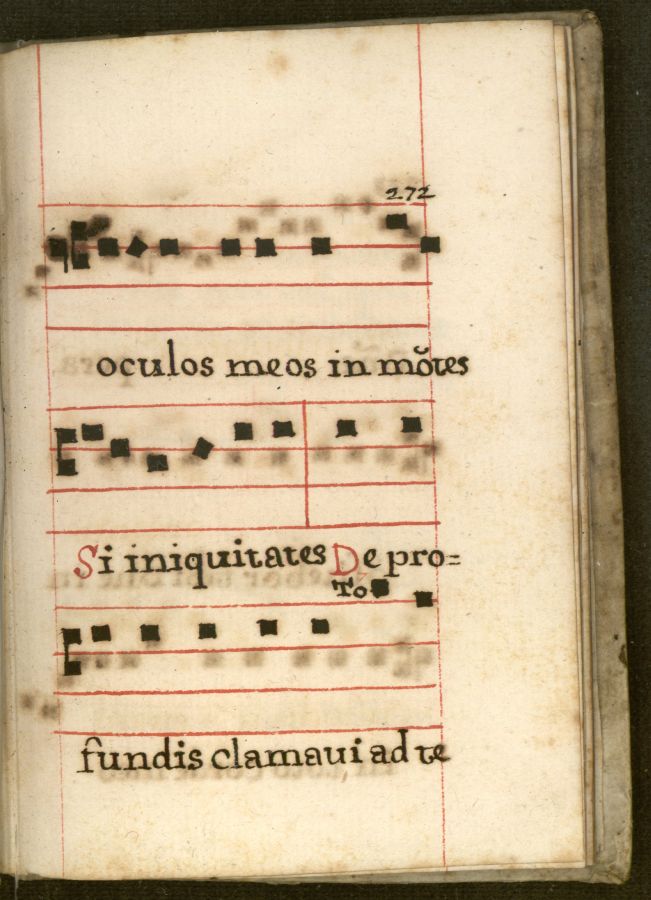 272
oculos meos in mõtes
Si iniquitates De pro=
To
fundis clamaui ad te